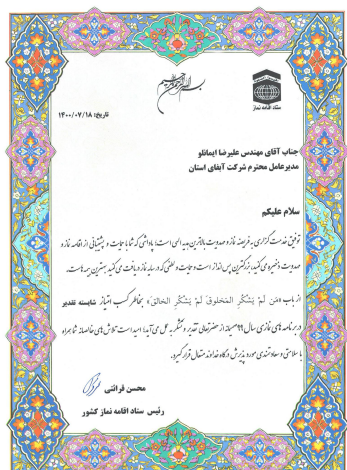 بسم الله الرحمن الرحیم
ستاد اقامه نماز
تاریخ: ۱۴۰۰/۰۷/۱۸
جناب آقای مهندس علیرضا ایمانلو
مدیرعامل محترم شرکت آبفای استان
سلام علیکم
توفیق خدمت گزاری به فریضه نماز و مهدویت بالاترین هدیه الهی است؛ پاداشی که شما با حمایت و پشتیبانی از اقامه نماز و
مهدویت ذخیره می کنید، بزرگترین پس انداز است و حمایت و لطفی که در سایه نماز دریافت می کنید بهترین بیمه هاست.
از باب «مَن لَمْ يَشْكُرِ المَخلوقَ لَمْ يَشْكُرِ الخالق» بخاطر کسب امتیاز شایسته تقدیر
در برنامه های نمازی سال ۹۹ صمیمانه از حضرتعالی تقدیر و تشکر به عمل می آید؛ امید است تلاش های خالصانه شما همراه
با سلامتی و سعادتمندی مورد پذیرش درگاه خداوند متعال قرار گیرد.
محسن قرائتی
رئیس ستاد اقامه نماز کشور